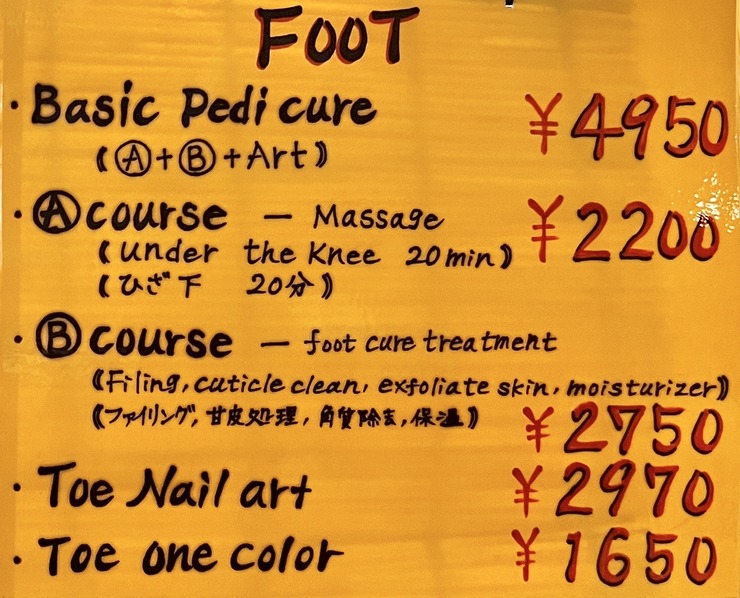 FOOT
・Basic Pedi cure ¥4950
《Ⓐ+Ⓑ+Art》
・Ⓐcourse — Massage ¥2200
《under the Knee 20min》
《ひざ下 20分》
・Ⓑcourse — foot cure treatment
《Filing, cuticle clean, exfoliate skin, moisturizer》
《ファイリング, 甘皮処理, 角質除去, 保湿》
¥2750
・Toe Nail art ¥2970
・Toe one color ¥1650